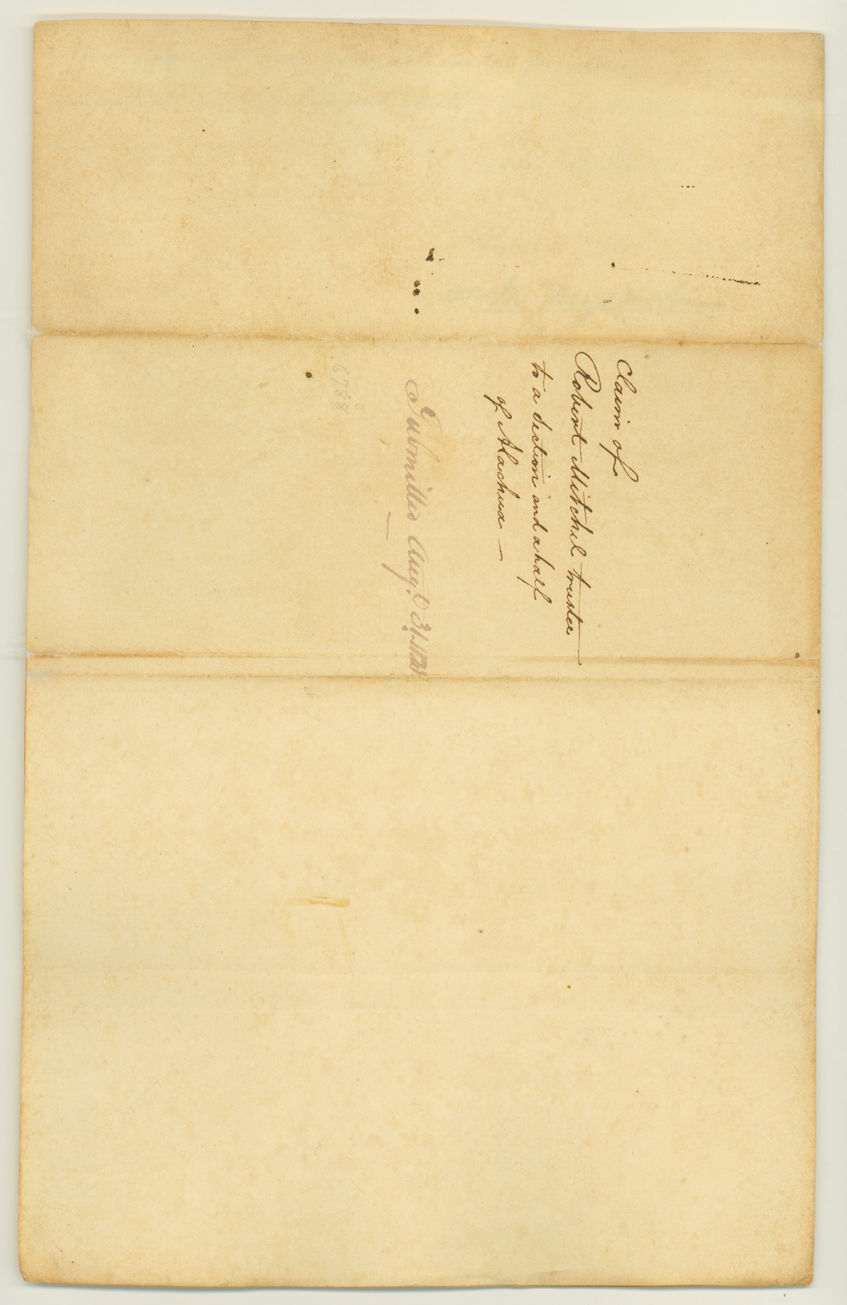 Claim of
Robert Mitchel trustee —
to a section and a half
of Alachua —
Submitted Aug. 31.
6788